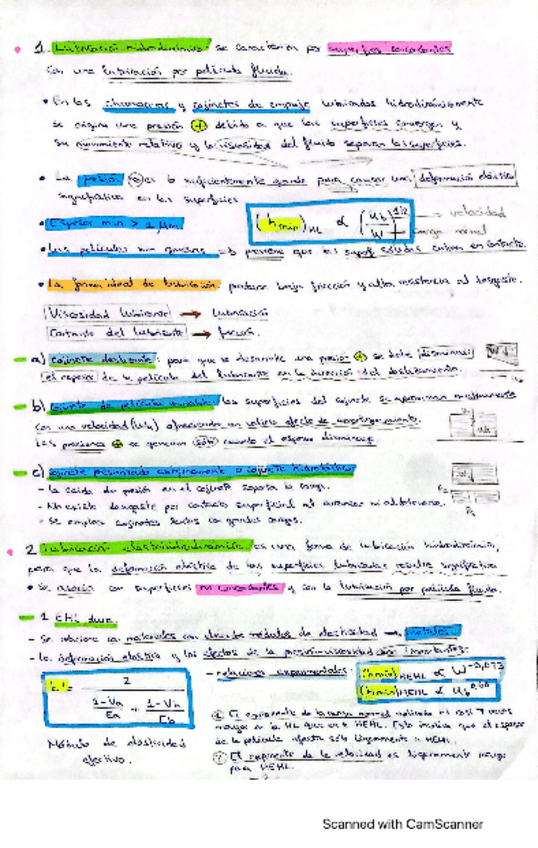 1. Lubricación hidrodinámica: se caracteriza por superficies concordantes
con una lubricación por película fluida.
• En las chumaceras y cojinetes de empuje lubricados hidrodinámicamente
se origina una presión + debido a que las superficies convergen y
su movimiento relativo y la viscosidad del fluido separan las superficies.
• La presión no es lo suficientemente grande para causar una deformación elástica
significativa en las superficies
• Espesor min > 1 μm.
(hmin)HL ∝ (ub/W)^1/2 → velocidad
→ carga normal
• Las películas son gruesas → previene que las superf. sólidas entren en contacto.
• La forma ideal de lubricación produce baja fricción y alta resistencia al desgaste.
Viscosidad lubricante → lubricación
Cortante del lubricante → fricción.
a) cojinete deslizante: para que se desarrolle una presión + se debe disminuir
el espesor de la película del lubricante en la dirección del deslizamiento.
b) cojinete de película las superficies del cojinete se aproximan mutuamente
con una velocidad (Wa) ofreciendo un valioso efecto de amortiguamiento.
Las presiones + se generan sólo cuando el espesor disminuye
c) cojinete presurizado externamente o cojinete hidrostático
- La caída de presión en el cojinete soporta la carga.
- No existe desgaste por contacto superficial al arrancar ni al detenerse.
- Se emplean cojinetes lentos con grandes cargas.
2. Lubricación elastohidrodinámica: es una forma de lubricación hidrodinámica,
para que la deformación elástica de las superficies lubricadas resulte significativa
• se asocia con superficies no concordantes y con la lubricación por película fluida.
- 1 EHL dura.
- Se relaciona con materiales con elevados módulos de elasticidad → metales
- La deformación elástica y los efectos de la presión-viscosidad son importantes:
E' = 2 / (1-Va/Ea + 1-Vb/Eb)
- relaciones experimentales:
(hmin)HEHL ∝ W^-0,073
(hmin)HEHL ∝ ub^0,68
Módulo de elasticidad
efectivo.
① El exponente de la carga normal aplicada es casi 7 veces
mayor en la HL que en HEHL. Esto implica que el espesor
de la película afecta sólo ligeramente a HEHL.
② El exponente de la velocidad es ligeramente mayor
para HEHL.
Scanned with CamScanner